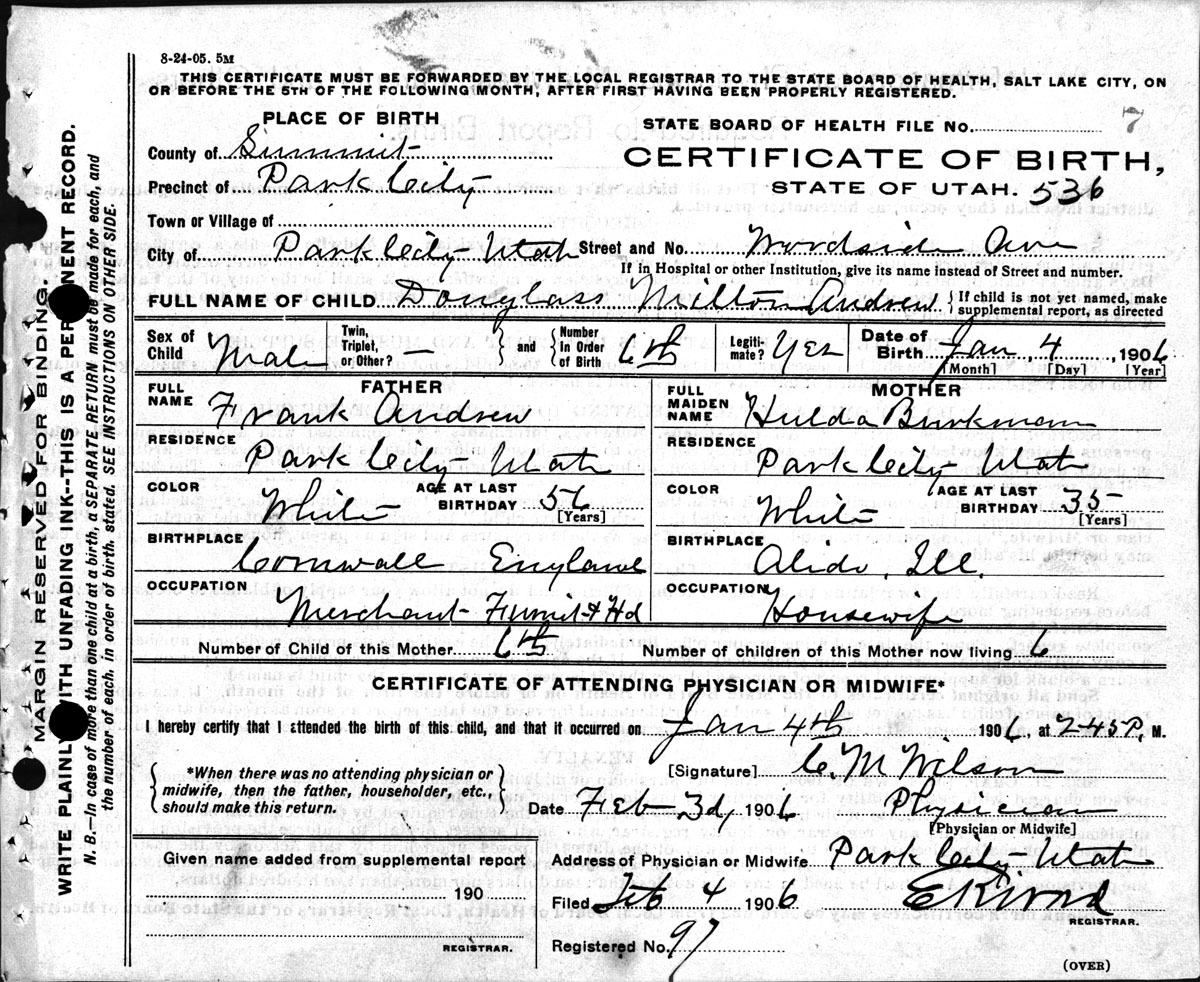 8-24-05. 5M
THIS CERTIFICATE MUST BE FORWARDED BY THE LOCAL REGISTRAR TO THE STATE BOARD OF HEALTH, SALT LAKE CITY, ON
OR BEFORE THE 5TH OF THE FOLLOWING MONTH, AFTER FIRST HAVING BEEN PROPERLY REGISTERED.
PLACE OF BIRTH
County of Summit
Precinct of Park City
Town or Village of
City of Park City Utah Street and No. Woodside Ave
STATE BOARD OF HEALTH FILE NO. 7
CERTIFICATE OF BIRTH,
STATE OF UTAH. 536
If in Hospital or other Institution, give its name instead of Street and number.
FULL NAME OF CHILD Douglass Milton Andrew { If child is not yet named, make supplemental report, as directed
Sex of Child Male Twin, Triplet, or Other? — } and { Number in Order of Birth 6th Legitimate? Yes Date of Birth Jan, 4, 1906
[Month] [Day] [Year]
FATHER
FULL NAME Frank Andrew
RESIDENCE
Park City Utah
COLOR White AGE AT LAST BIRTHDAY 56
[Years]
BIRTHPLACE
Cornwall England
OCCUPATION
Merchant Furnit & Hd
MOTHER
FULL MAIDEN NAME Hulda Burkman
RESIDENCE
Park City Utah
COLOR White AGE AT LAST BIRTHDAY 35
[Years]
BIRTHPLACE
Alido, Ill.
OCCUPATION
Housewife
Number of Child of this Mother 6th Number of children of this Mother now living 6
CERTIFICATE OF ATTENDING PHYSICIAN OR MIDWIFE*
I hereby certify that I attended the birth of this child, and that it occurred on Jan 4th 1906, at 2-45 P, M.
{ *When there was no attending physician or
midwife, then the father, householder, etc.,
should make this return. }
[Signature] C. M Wilson
Date Feb 3d, 1906 Physician
[Physician or Midwife]
Given name added from supplemental report
190
REGISTRAR.
Address of Physician or Midwife Park City Utah
Filed Feb 4 1906
REGISTRAR.
Registered No. 97
(OVER)
MARGIN RESERVED FOR BINDING.
WRITE PLAINLY WITH UNFADING INK--THIS IS A PERMANENT RECORD.
N. B.—In case of more than one child at a birth, a SEPARATE RETURN must be made for each, and
the number of each, in order of birth, stated. SEE INSTRUCTIONS ON OTHER SIDE.